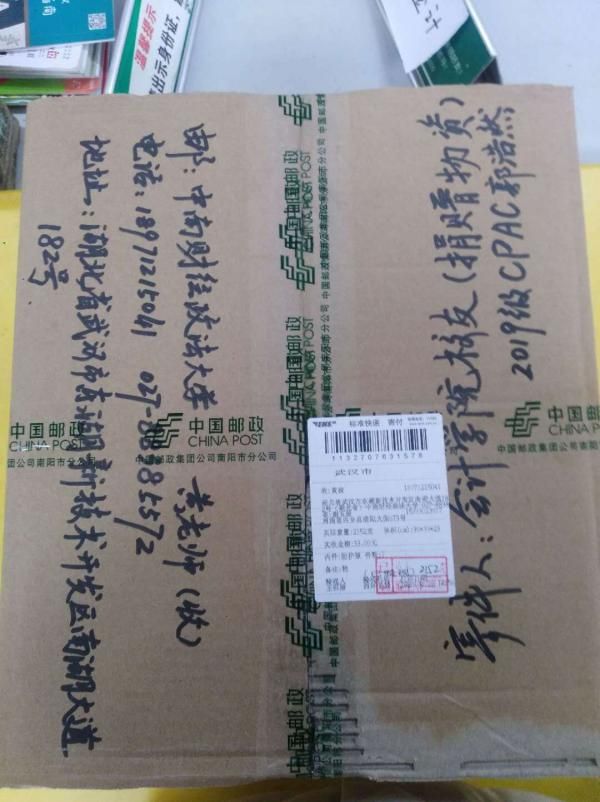 温馨提示
出示身份证,
邮：中南财经政法大学 黄老师（收）
电话：18971215041
地址：湖北省武汉市东湖新技术开发区南湖大道
182号
寄件人：会计学院校友（捐赠物资）
2019级CPAC郭浩然
中国邮政
CHINA POST
中国邮政集团公司南阳市分公司
中国邮政
CHINA POST
中国邮政
CHINA POST
中国邮政集团公司南阳市分公司
标准快递 寄付
1132707631578
武汉市
18971215041
实际重量:2152克
实收金额:53.00元
内件:防护服
备注:
2152